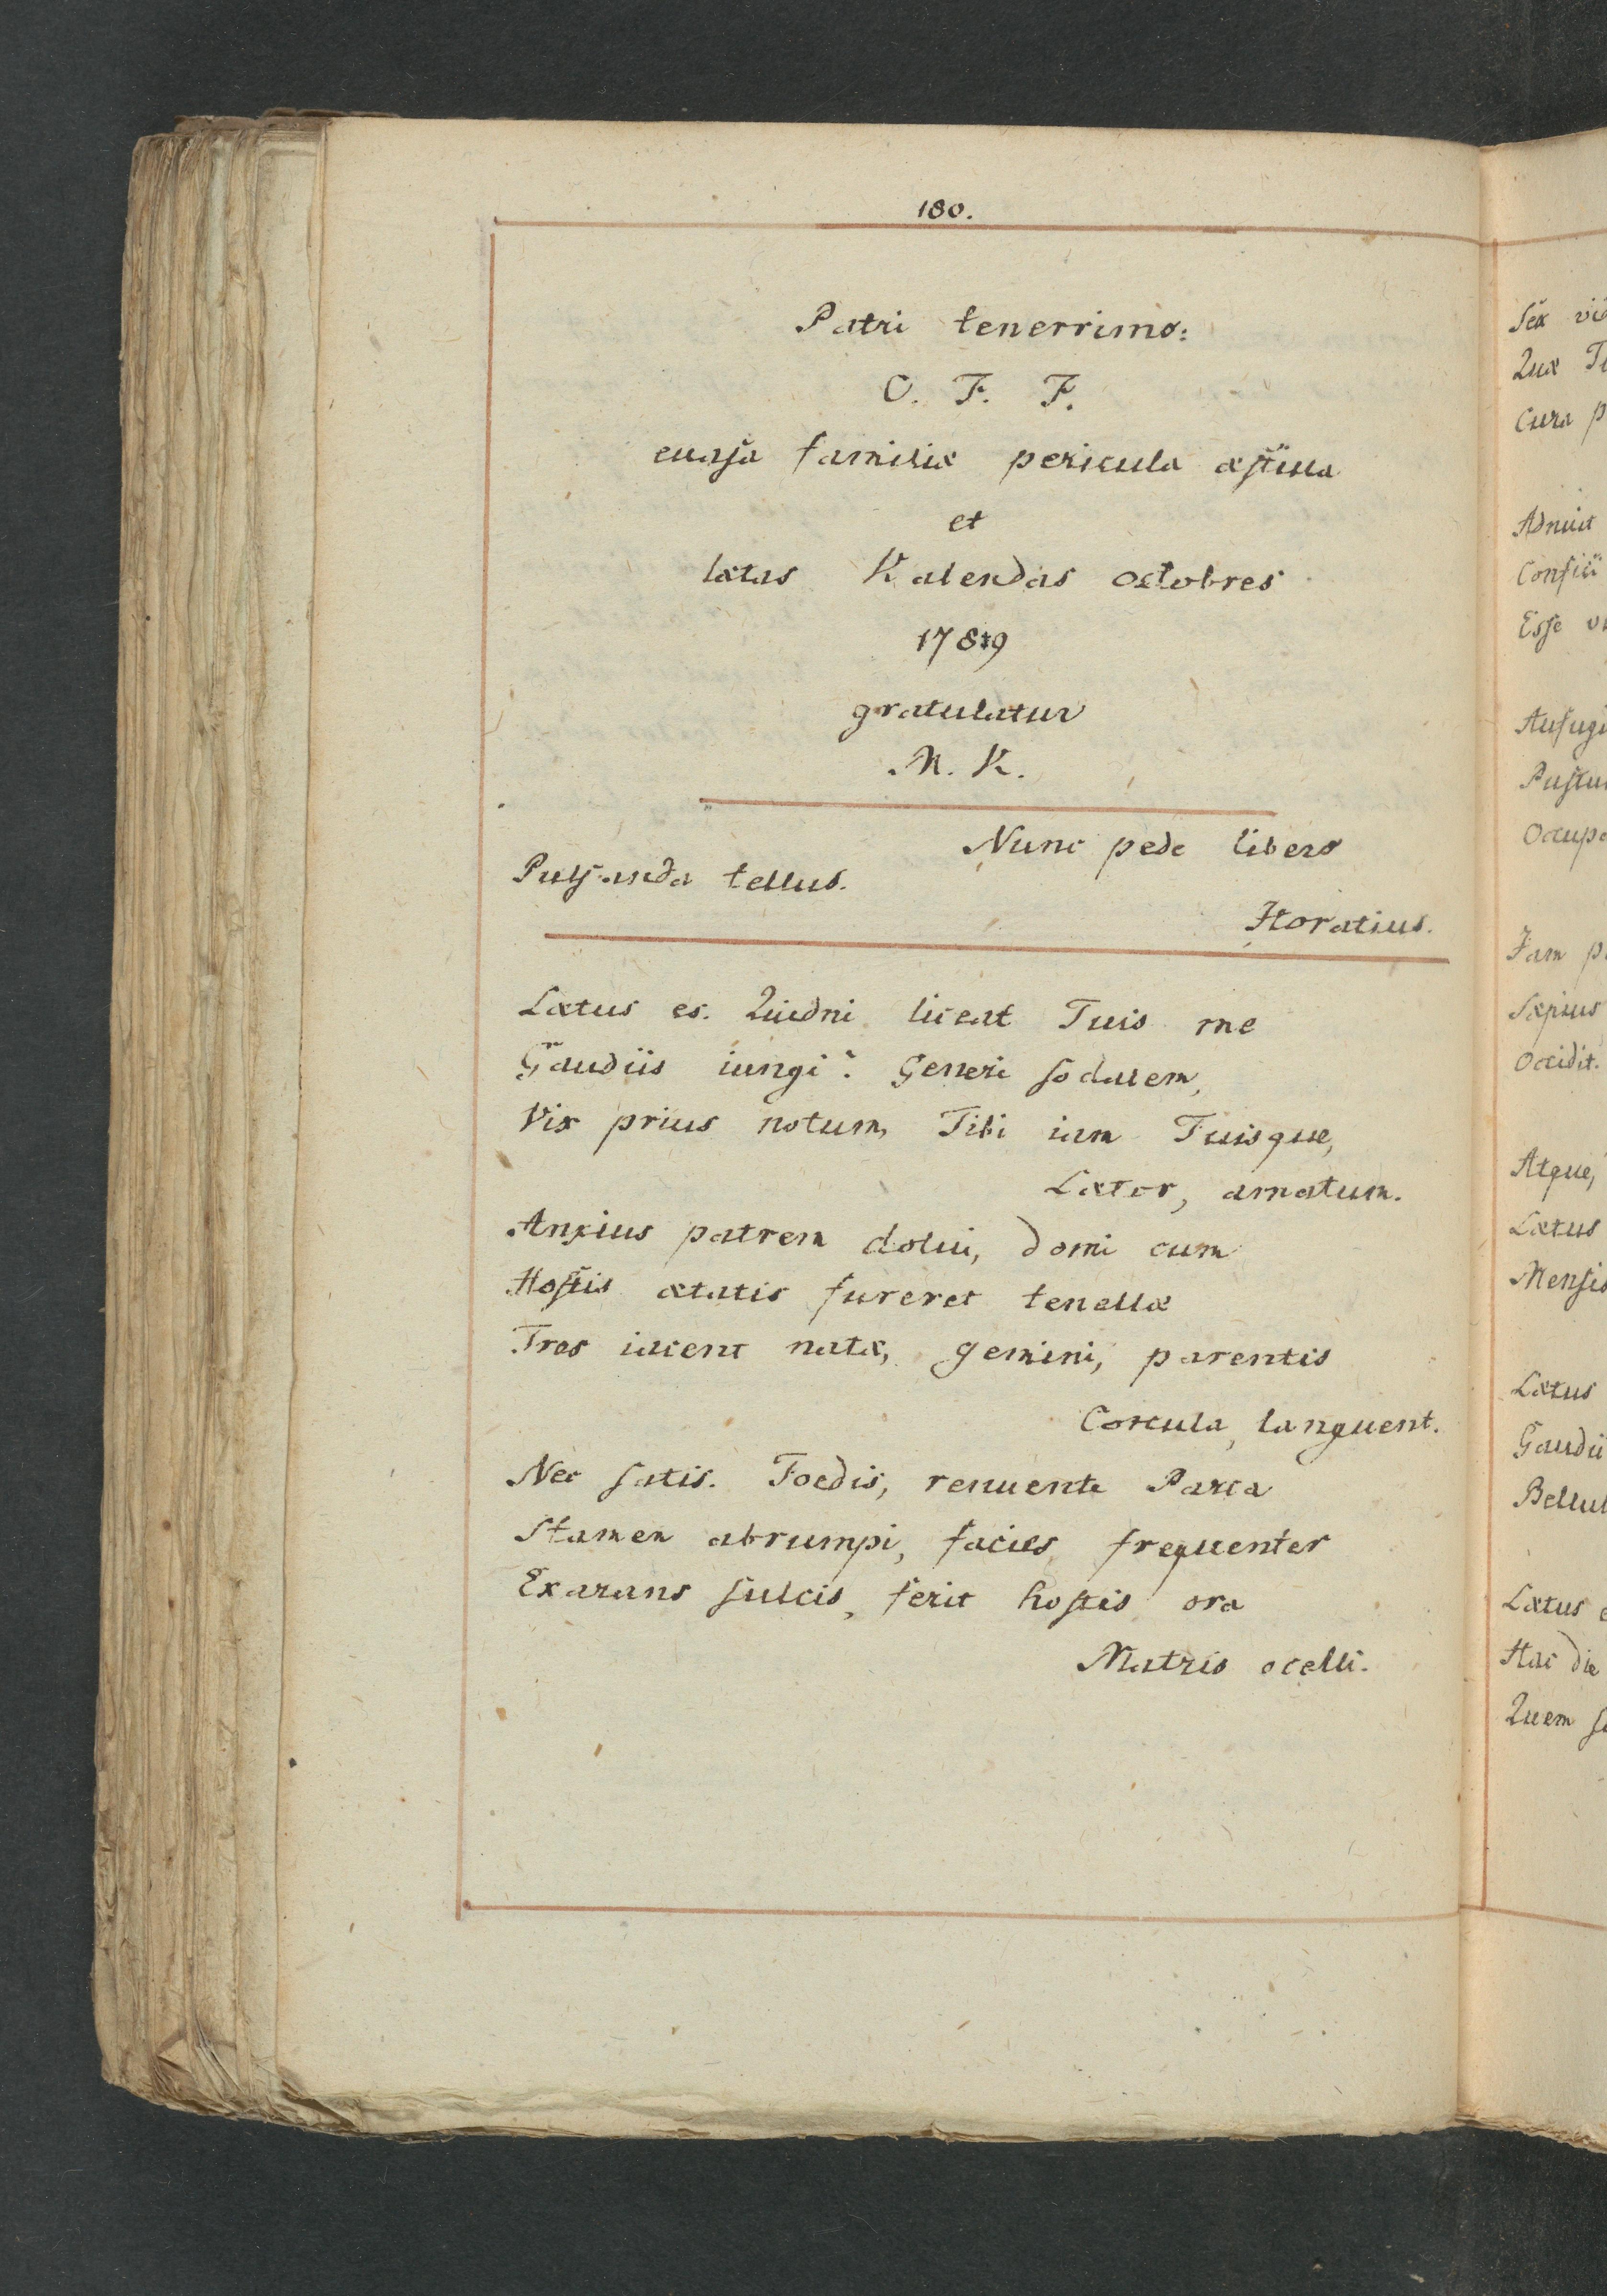 180.
Patri tenerrimo:
O. F. F.
euasa familiæ pericula æstiua
et
lætas Kalendas octobres
1789
gratulatur
M. K.
Nunc pede libero
Pulsanda tellus.
Horatius.
Lætus es. Quidni liceat Tuis me
Gaudiis iungi? Generi sodalem,
Vix prius notum, Tibi iam Tuisque,
Lætor, amatum.
Anxius patrem dolui, domi cum
Hostis ætatis fureret tenellæ
Tres iacent natæ, gemini, parentis
Corcula, languent.
Nec satis. Foedis, renuente Parca
Stamen abrumpi, facies frequenter
Exarans sulcis, ferit hostis ora
Matris ocelli.
Sex
Quæ
Cura
Adnuit
Esse
Lætus
Hac die
Quem
Jam
Sæpius
Occidit.
Atque,
Lætus
Mensis
Lætus